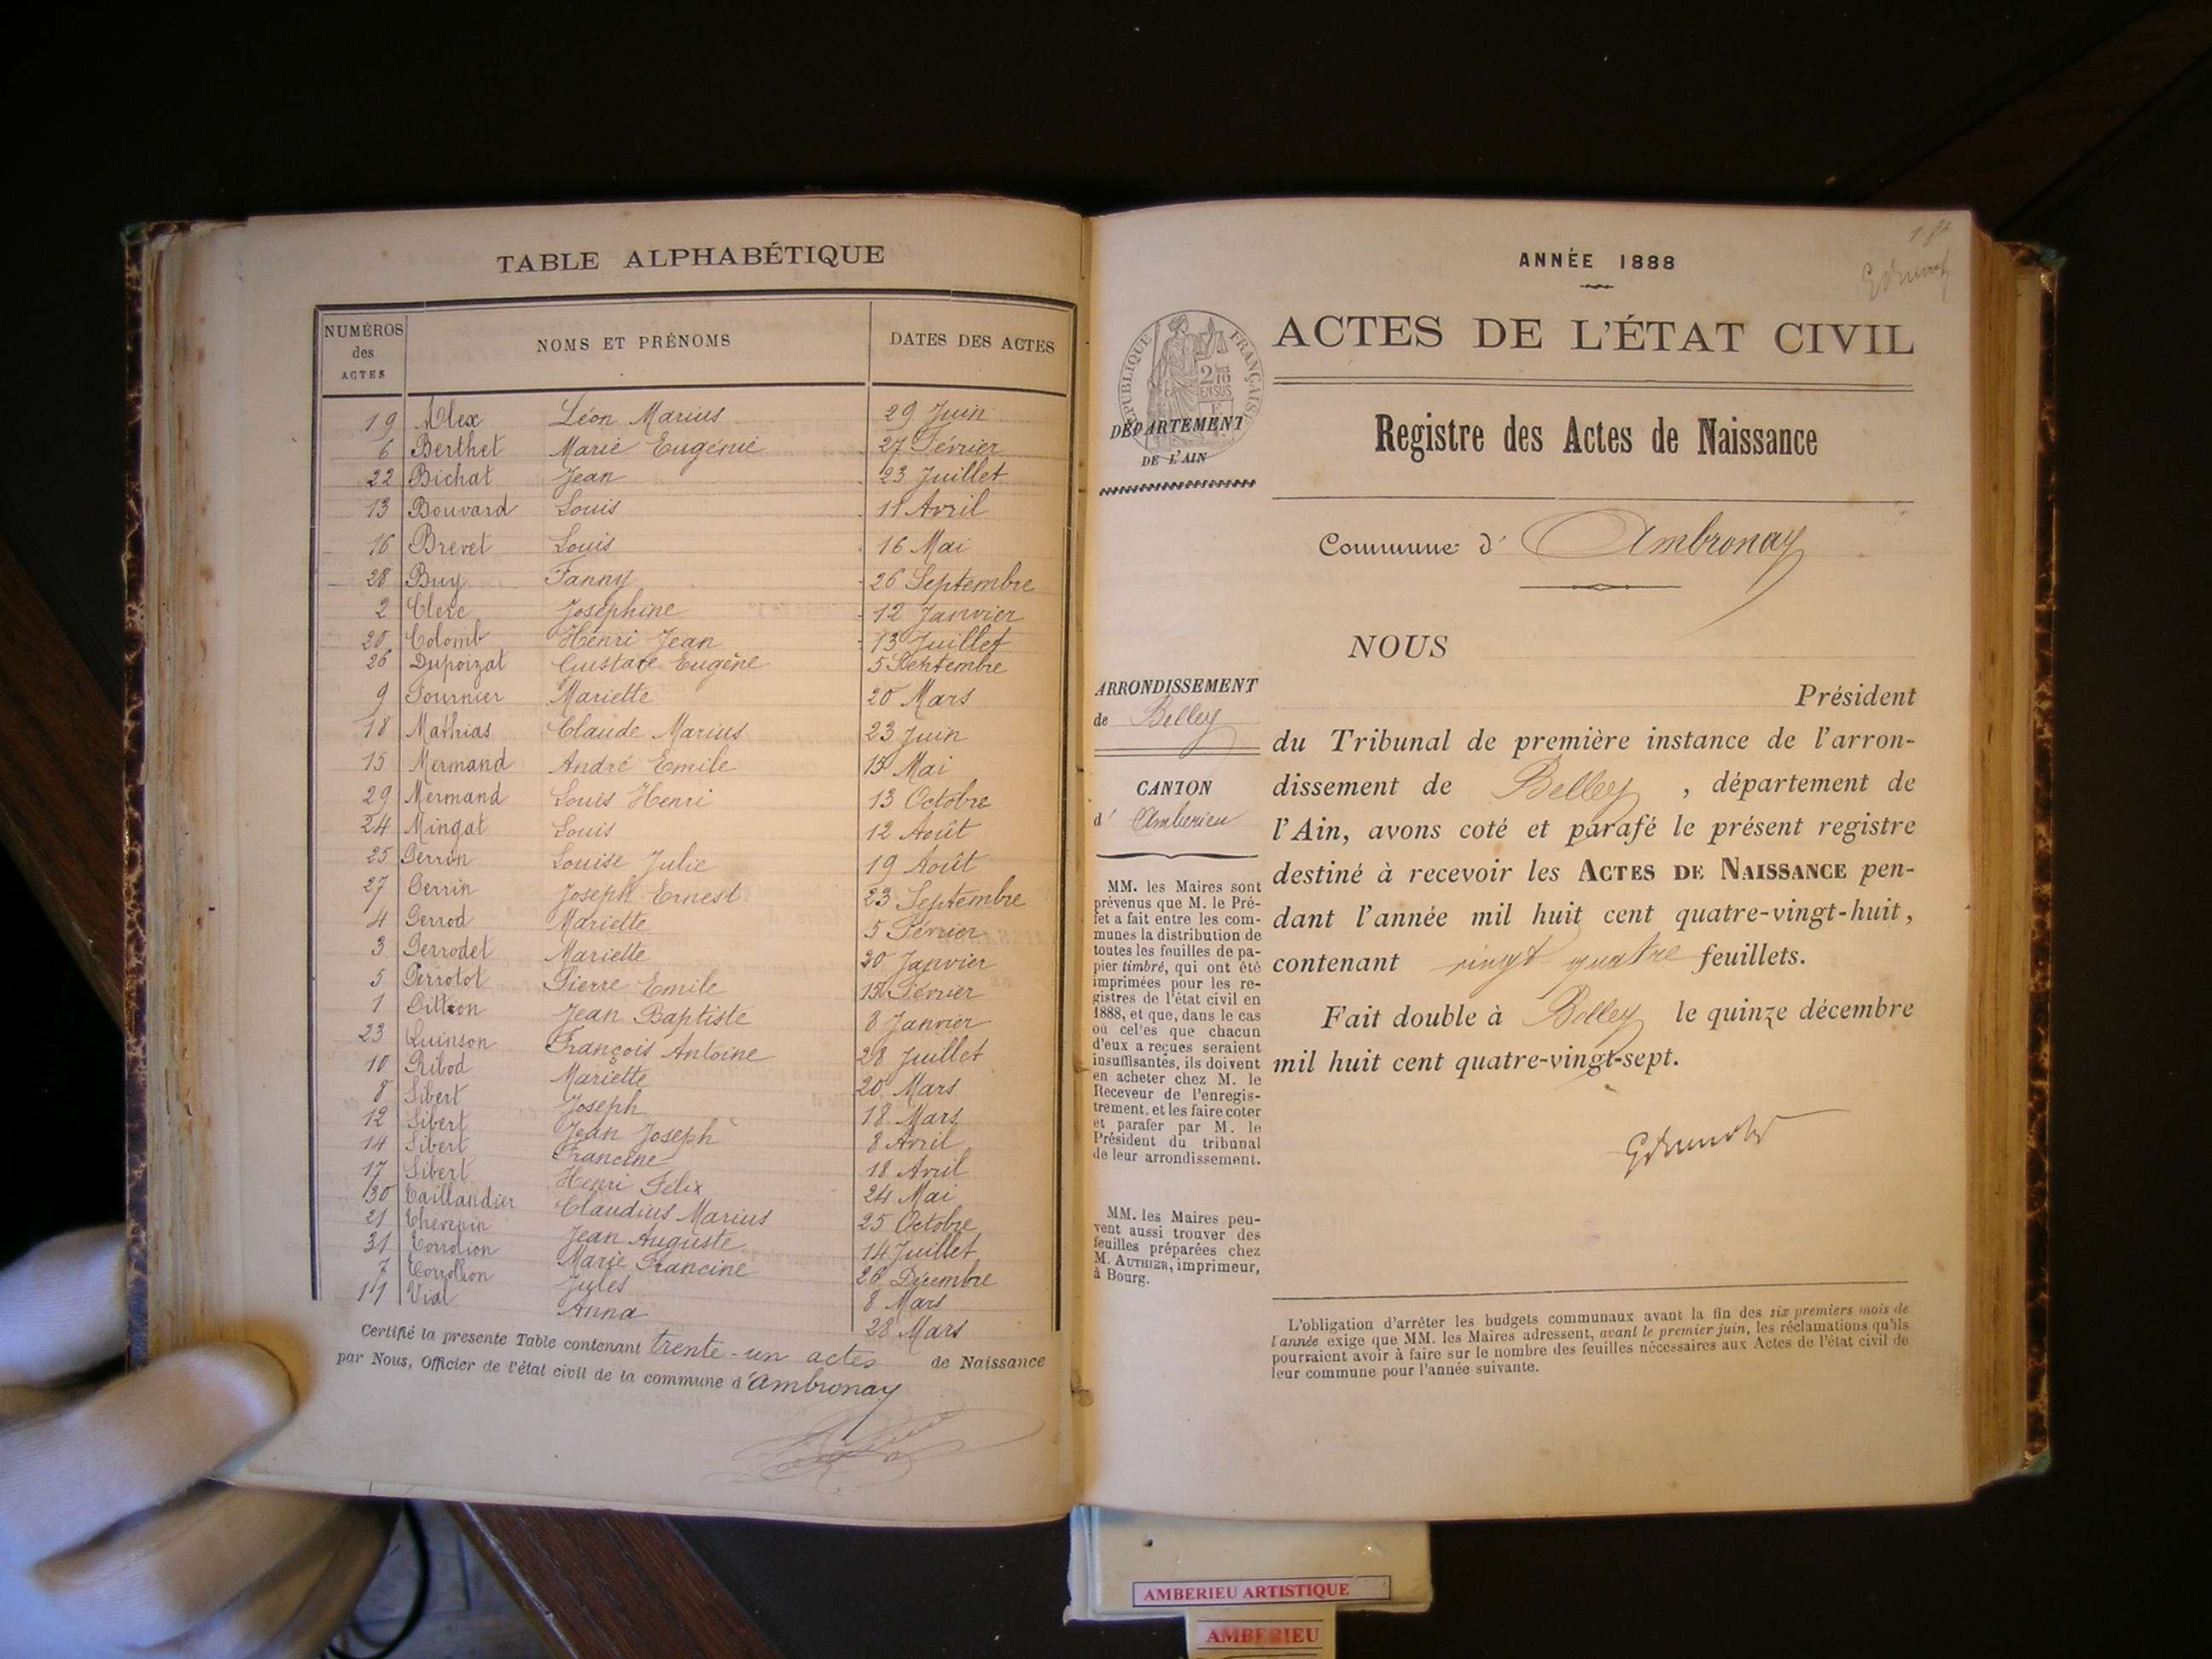 TABLE ALPHABÉTIQUE
NUMÉROS des ACTES NOMS ET PRÉNOMS DATES DES ACTES
19 Alex Léon Marius 29 Juin
6 Berthet Marie Eugénie 27 Février
22 Bichat Jean 23 Juillet
13 Bouvard Louis 11 Avril
16 Brevet Louis 16 Mai
28 Buy Fanny 26 Septembre
2 Clerc Joséphine 12 Janvier
20 Colomb Henri Jean 13 Juillet
26 Dupoizat Gustave Eugène 5 Septembre
9 Fournier Mariette 20 Mars
18 Mathias Claude Marius 23 Juin
15 Mermand André Emile 15 Mai
29 Mermand Louis Henri 13 Octobre
24 Mingat Louis 12 Août
25 Perrin Louise Julie 19 Août
27 Perrin Joseph Ernest 23 Septembre
4 Perrod Mariette 5 Février
3 Perrodet Mariette 20 Janvier
5 Perrotot Pierre Emile 15 Février
1 Pittion Jean Baptiste 8 Janvier
23 Quinson François Antoine 28 Juillet
10 Ribod Mariette 20 Mars
8 Sibert Joseph 18 Mars
12 Sibert Jean Joseph 8 Avril
14 Sibert Francine 18 Avril
17 Sibert Henri Félix 24 Mai
30 Taillandier Claudius Marius 25 Octobre
21 Thevenin Jean Auguste 14 Juillet
31 Marie Francine 26 Décembre
7 Jules 8 Mars
11 Vial Anna 28 Mars
Certifié la presente Table contenant trente-un actes de Naissance
par Nous, Officier de l'état civil de la commune d'Ambronay
ANNÉE 1888
ACTES DE L'ÉTAT CIVIL
RÉPUBLIQUE FRANÇAISE
DÉPARTEMENT
DE L'AIN
Registre des Actes de Naissance
Commune d' Ambronay
NOUS
Président
du Tribunal de première instance de l'arron-
dissement de Belley, département de
l'Ain, avons coté et parafé le présent registre
destiné à recevoir les ACTES DE NAISSANCE pen-
dant l'année mil huit cent quatre-vingt-huit,
contenant vingt quatre feuillets.
Fait double à Belley le quinze décembre
mil huit cent quatre-vingt-sept.
ARRONDISSEMENT
de Belley
CANTON
d' Amberieu
MM. les Maires sont
prévenus que M. le Pré-
fet a fait entre les com-
munes la distribution de
toutes les feuilles de pa-
pier timbré, qui ont été
imprimées pour les re-
gistres de l'état civil en
1888, et que, dans le cas
où cel'es que chacun
d'eux a reçues seraient
insuffisantes, ils doivent
en acheter chez M. le
Receveur de l'enregis-
trement, et les faire coter
et parafer par M. le
Président du tribunal
de leur arrondissement.
MM. les Maires peu-
vent aussi trouver des
feuilles préparées chez
M. AUTHIER, imprimeur,
à Bourg.
L'obligation d'arrêter les budgets communaux avant la fin des six premiers mois de
l'année exige que MM. les Maires adressent, avant le premier juin, les réclamations qu'ils
pourraient avoir à faire sur le nombre des feuilles nécessaires aux Actes de l'état civil de
leur commune pour l'année suivante.
AMBERIEU ARTISTIQUE
AMBERIEU